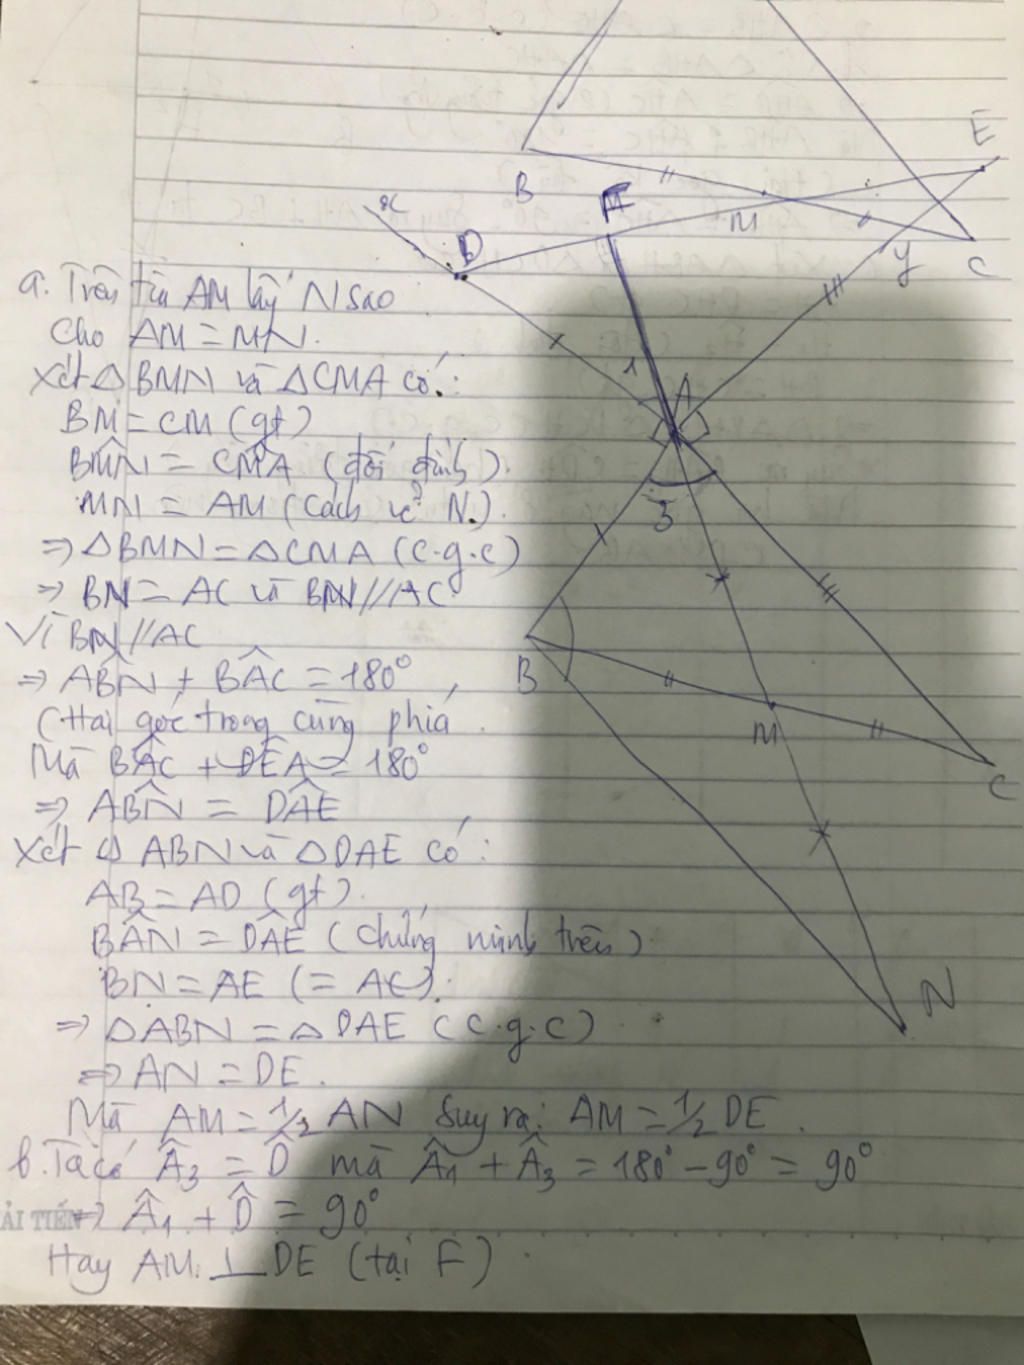 E
B
M
F
x
D
y
C
a. Trên tia AM lấy N sao
cho AM = MN.
Xét △BMN và △CMA có:
BM = CM (gt)
BM̂N = CM̂A (đối đỉnh).
MN = AM (cách vẽ N.).
⇒ △BMN = △CMA (c.g.c)
⇒ BN = AC và BN // AC
Vì BN // AC
⇒ AB̂N + BÂC = 180°
(Hai góc trong cùng phía.
Mà BÂC + DÊA = 180°
⇒ AB̂N = DÂE
Xét △ABN và △DAE có:
AB = AD (gt).
BÂN = DÂE (chứng minh trên)
BN = AE (= AC).
⇒ △ABN = △DAE (c.g.c)
⇒ AN = DE.
Mà AM = 1/2 AN Suy ra: AM = 1/2 DE.
b. Ta có Â3 = D̂ mà Â1 + Â3 = 180° - 90° = 90°
ẢI TIẾN
⇒ Â1 + D̂ = 90°
Hay AM ⊥ DE (tại F).
1
A
3
B
M
C
N